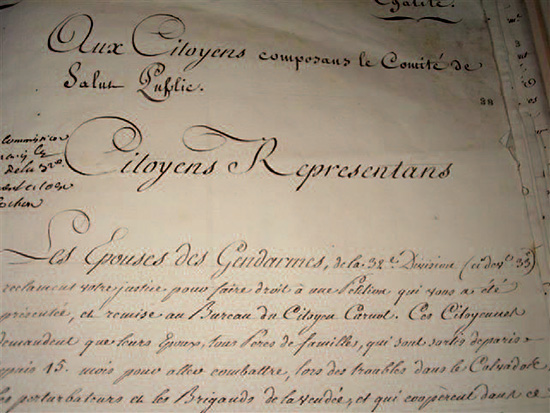 Egalité.
Aux Citoyens composans le Comité de
Salut Public.
38
Citoyens Representans
Commission
Les Epouses des Gendarmes, de la 32.e Division (ci dev.t 35.e)
reclament votre justice pour faire droit à une Petition qui vous a été
présentée, et remise au Bureau du Citoyen Carnot. Ces Citoyennes
demandent que leurs Epoux, tous Peres de familles, qui sont sortis de paris
depuis 15. mois pour aller combattre, lors des troubles dans le Calvados,
les perturbateurs et les Brigands de la vendée, et qui cooperent dans ce